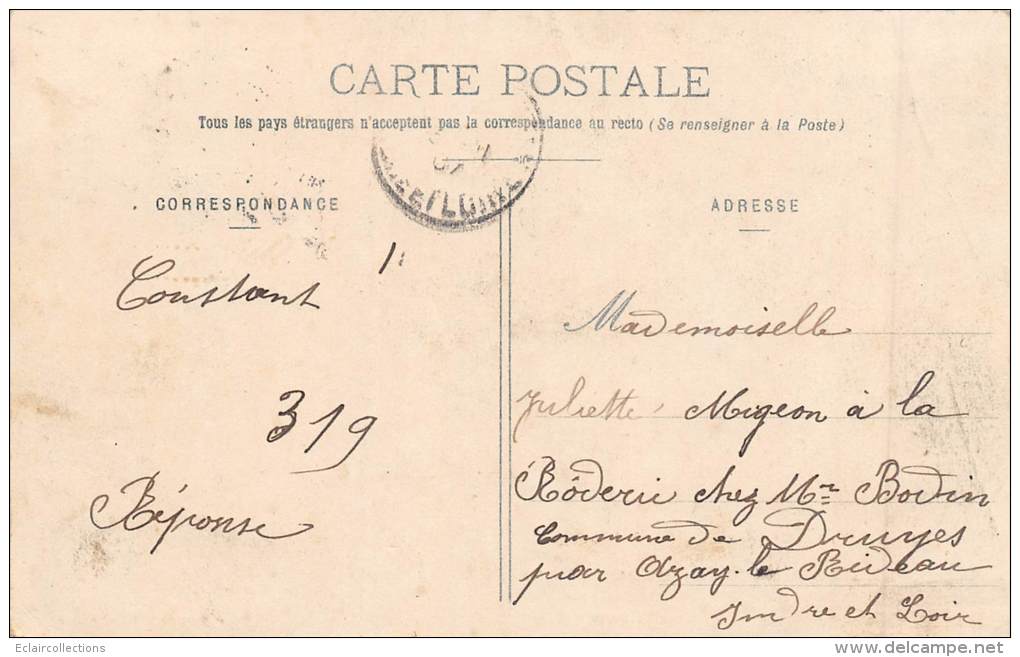 CARTE POSTALE
Tous les pays étrangers n'acceptent pas la correspondance au recto (Se renseigner à la Poste)
CORRESPONDANCE
ADRESSE
Constant
319
Réponse
Mademoiselle
Juliette Migeon à la
Róderie chez Mr Bodin
Commune de Druyes
par Azay-le Rideau
Indre et Loir
Eclaircollections
delcampe.net